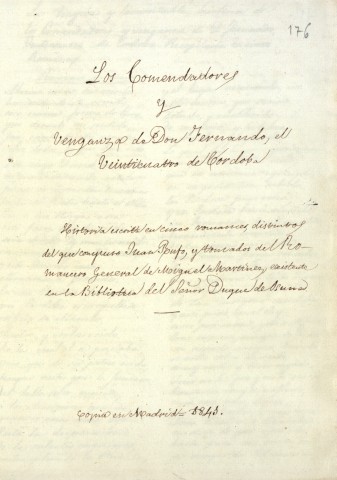 176
Los Comendadores
Y
Venganza de Don Fernando, el
Veinticuatro de Cordoba
Historia escrita en cinco romances, distintos
del que compuso Juan Rufo, y tomados del Ro-
mancero General de Miguel Martinez, existente
en la Biblioteca del Señor Duque de Osuna
Copia en Madrid = 1843.